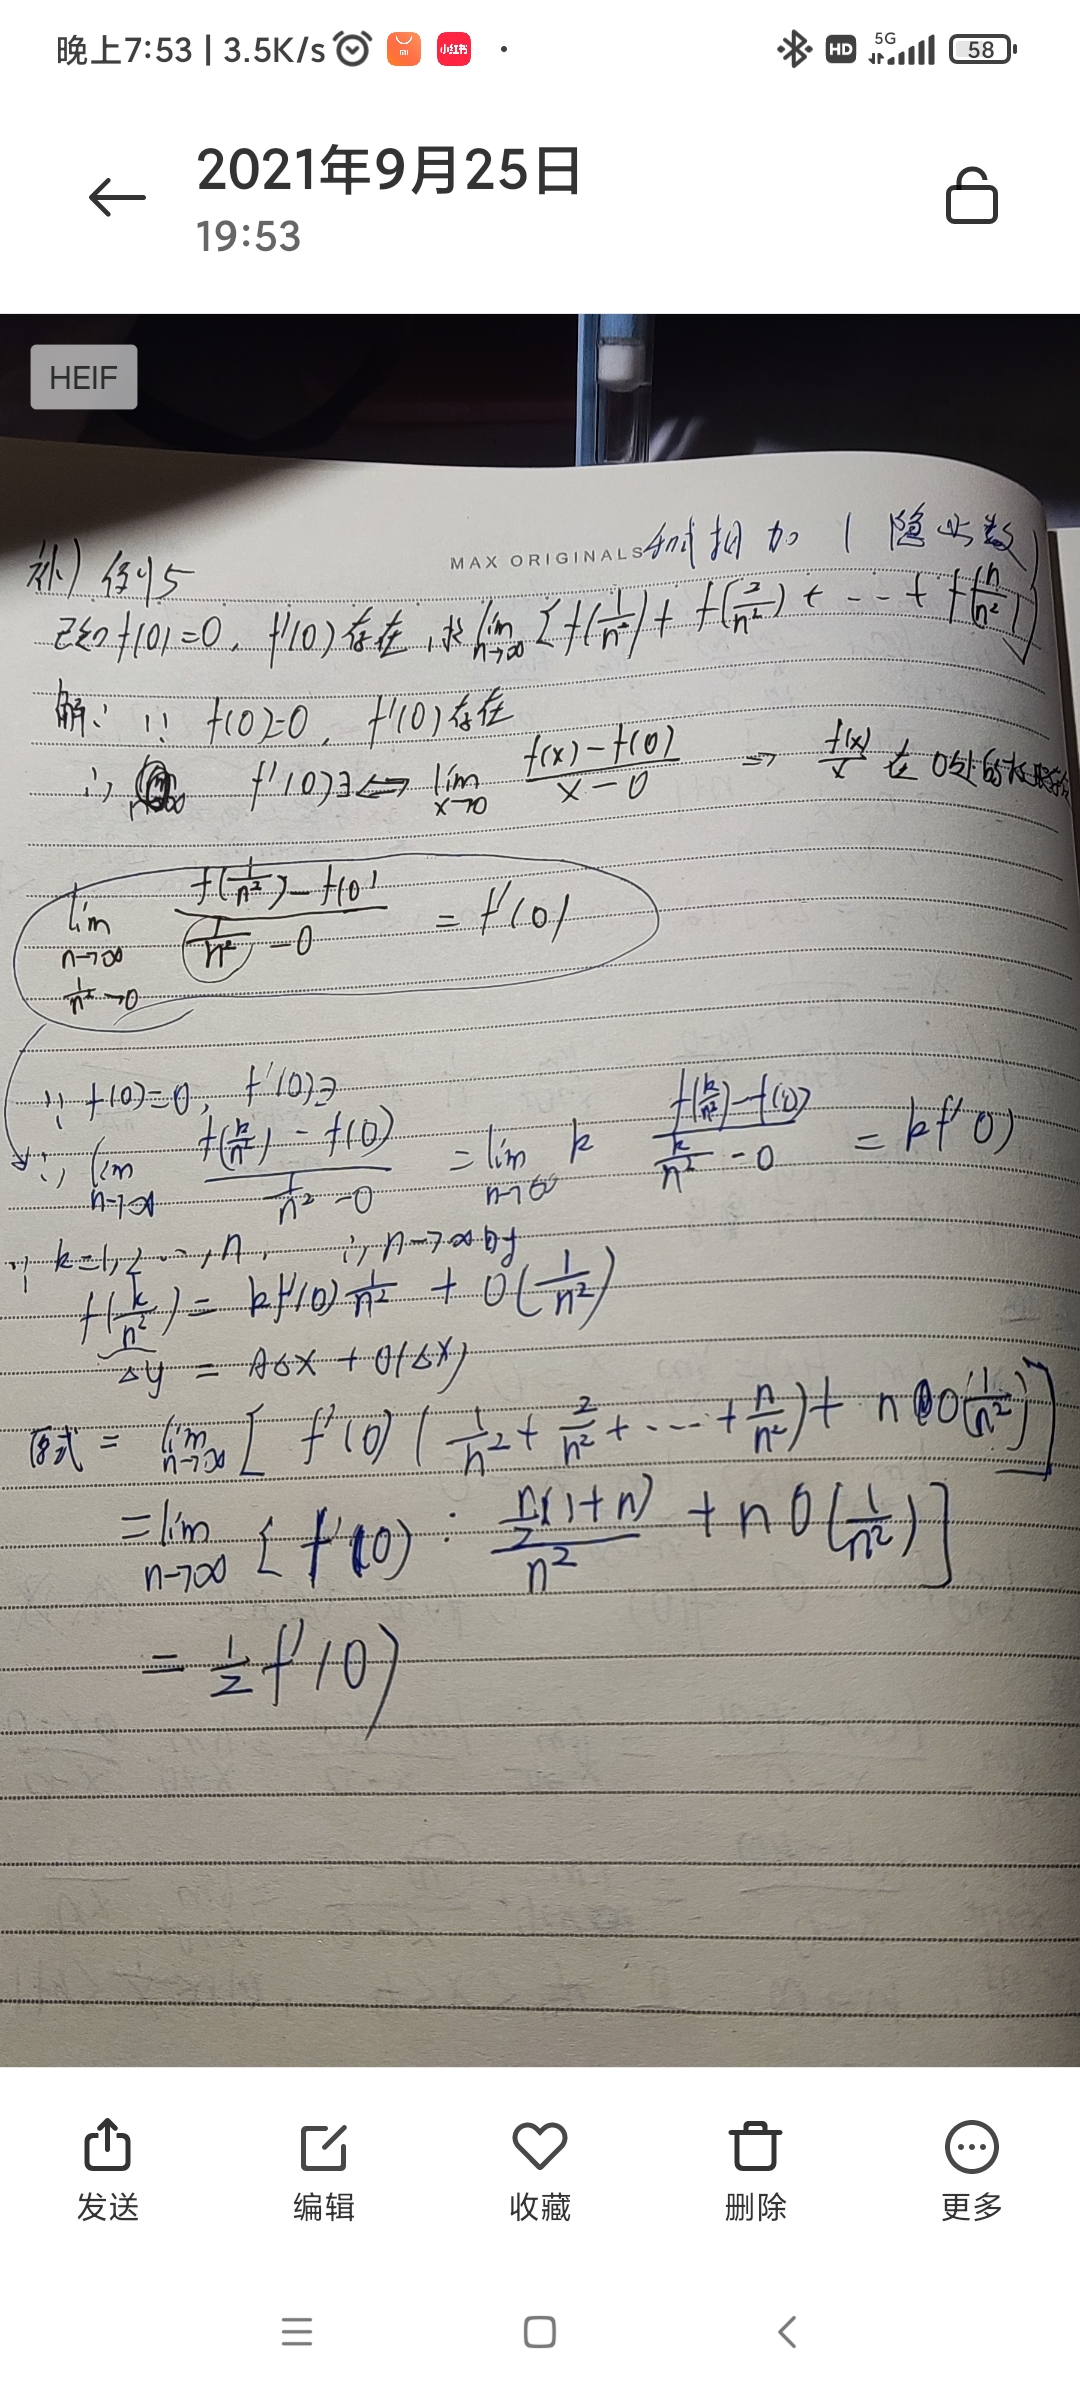 晚上7:53 | 3.5K/s
HD 5G 58
2021年9月25日
19:53
HEIF
MAX ORIGINALS
加 1 隐函数
补) 例5
已知f(0)=0, f'(0)存在, 求 lim n→∞ [f(1/n²)+f(2/n²)+…+f(n/n²)]
解: ∵ f(0)=0, f'(0)存在
∴ f'(0)∃ ⇔ lim x→0 (f(x)-f(0))/(x-0) ⇒ f(x)/x 在0处的
lim n→∞ 1/n²→0 (f(1/n²)-f(0))/(1/n²-0) = f'(0)
∵ f(0)=0, f'(0)∃
∴ lim n→∞ (f(k/n²)-f(0))/(1/n²-0) = lim n→∞ k (f(k/n²)-f(0))/(k/n²-0) = kf'(0)
∵ k=1,2…,n, ∴ n→∞时
f(k/n²) = kf'(0) 1/n² + o(1/n²)
Δy = AΔx + o(Δx)
原式 = lim n→∞ [f'(0)(1/n²+2/n²+…+n/n²)+n o(1/n²)]
= lim n→∞ [f'(0)·(n/2(1+n))/n² + n o(1/n²)]
= 1/2 f'(0)
发送 编辑 收藏 删除 更多